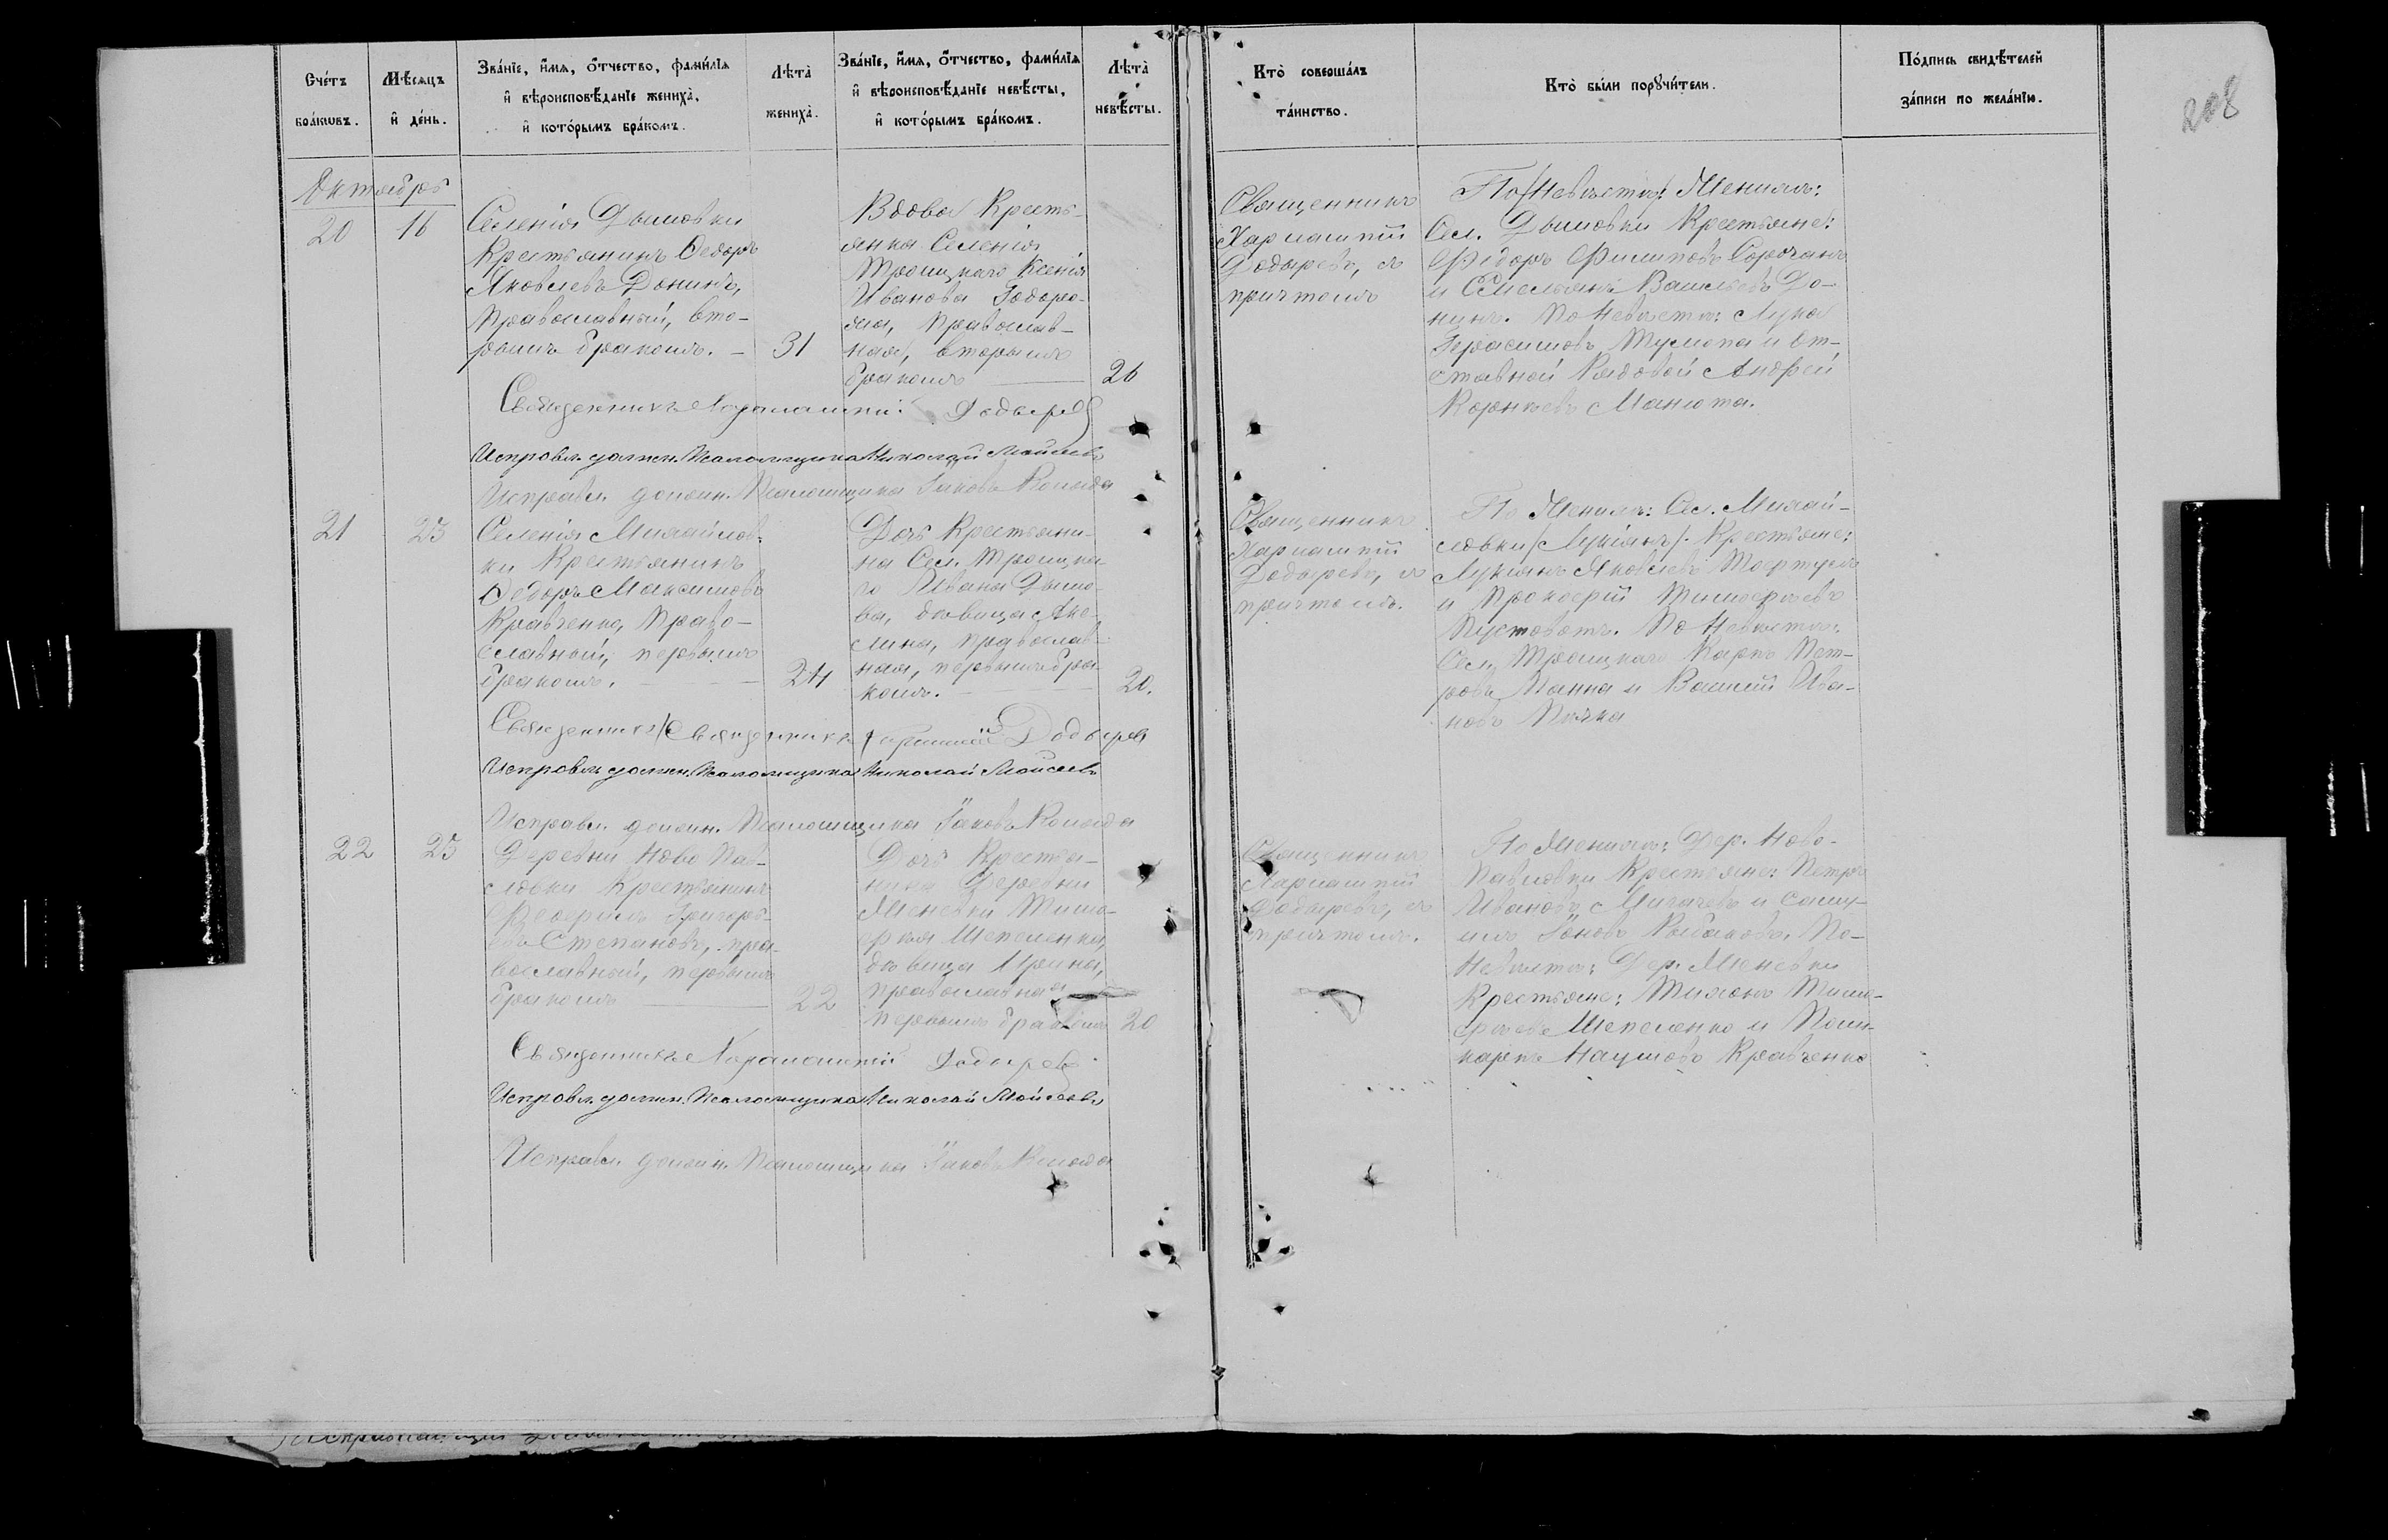 Счétъ бра́кωвъ.
Мѣ́сяцъ и҆ де́нь.
Зва́нїе, и҆́мя, о҆́тчество, фами́лїя
и҆ вѣроисповѣ́данїе жениха̀,
и҆ кото́рымъ бра́комъ.
Лѣта̀ жениха̀.
Зва́нїе, и҆́мя, о҆́тчество, фами́лїя
и҆ вѣроисповѣ́данїе невѣ́сты,
и҆ кото́рымъ бра́комъ.
Лѣта̀ невѣ́сты.
Кто̀ соверша́лъ
та́инство.
Кто̀ бы́ли порꙋчи́тели.
По́дпись свидѣ́телей
за́писи по жела́нїю.
208
Октябрь
20
16
Селенія Дымовки
Крестьянинъ Ѳедоръ
Яковлевъ Донинъ,
Православный, вто-
рымъ бракомъ.
31
Вдова Кресть-
янка Селенія
Троицкаго Ксенія
Иванова
Православ-
ная, вторымъ
бракомъ
26
Священникъ
Харлампій
Додыревъ, съ
причтомъ
По /Невѣсты/: Женихѣ:
Сел. Дымовки Крестьяне:
Федоръ Филиповъ Сорочанъ
и Емельянъ Васильевъ До-
нинъ. По Невѣстѣ: Лука
Герасимовъ и От-
ставной Рядовой Андрей
Корнѣевъ Манюта.
Священникъ Харлампій Додыревъ
Исправл. должн. Псаломщика Николай Мойсеевъ
Исправл. должн. Псаломщика Іаковъ
21
25
Селенія Михайлов-
ки Крестьянинъ
Ѳедоръ Максимовъ
Кравченко, Право-
славный, первымъ
бракомъ.
24
Дочь Крестьяни-
на Сел. Троицка-
го Ивана Дымо-
ва, дѣвица Аку-
лина, православ-
ная, первымъ бра-
комъ.
20.
Священникъ
Харлампій
Додыревъ, съ
причтомъ.
По Женихѣ: Сел. Михай-
ловки /Лукіанъ/. Крестьяне:
Лукіанъ Яковлевъ
и Прокофій Тимофѣевъ
Пустовотъ. По Невѣстѣ:
Сел. Троицкаго Карпъ Пет-
ровъ Панна и Василій Ива-
новъ
Священникъ /Священникъ Харлампій Додыревъ
Исправл. должн. Псаломщика Николай Мойсеевъ
Исправл. должн. Псаломщика Іаковъ
22
25
Деревни Ново Пав-
ловки Крестьянинъ
Феофилъ Григорь-
евъ Степановъ, пра-
вославный, первымъ
бракомъ
22
Дочь Крестья-
нина Деревни
Меневки Тимо-
фѣя Шепеленки,
дѣвица Ирина,
православная
первымъ бракомъ
20
Священникъ
Харлампій
Додыревъ, съ
причтомъ.
По Женихѣ: Дер. Ново-
Павловки Крестьяне: Петръ
Ивановъ и Саму-
илъ Іоновъ Рыбаковъ. По
Невѣстѣ: Дер. Меневки
Крестьяне: Тихонъ Тимо-
фѣевъ Шепеленко и Поли-
карпъ Наумовъ Кравченко
Священникъ Харлампій Додыревъ
Исправл. должн. Псаломщика Николай Мойсеевъ
Исправл. должн. Псаломщика Іаковъ